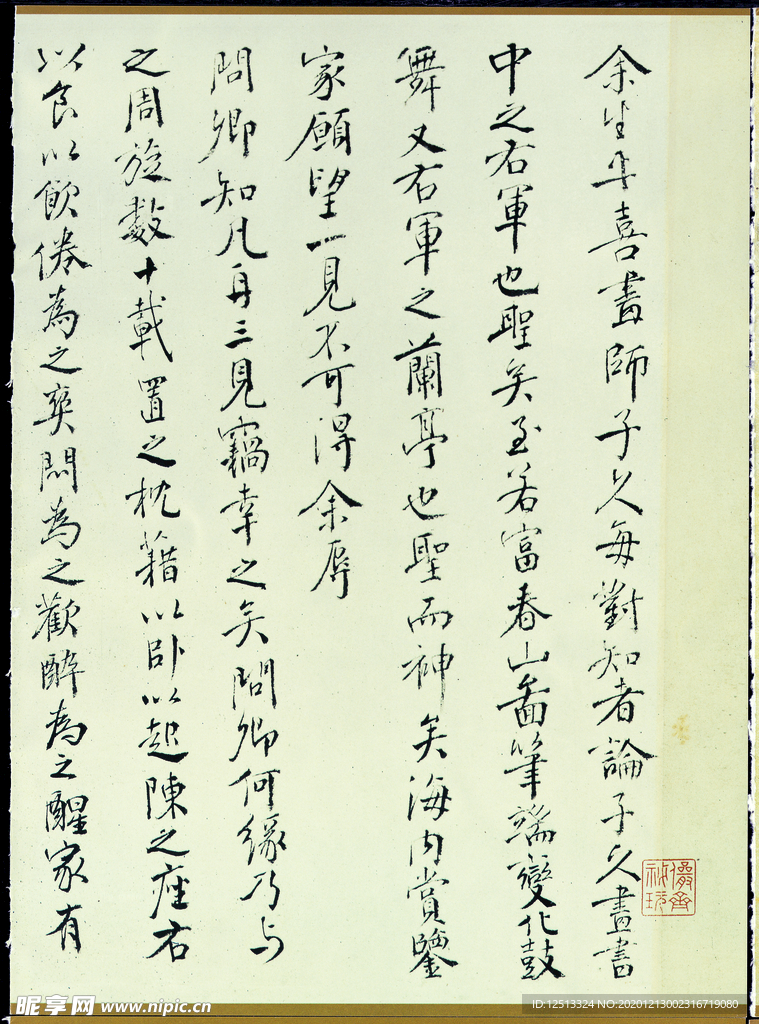 余生平喜畫師子久每對知者論子久畫書
中之右軍也聖矣至若富春山啚筆端變化鼓
舞又右軍之蘭亭也聖而神矣海内賞鑒
家願望一見不可得余辱
問卿知凡再三見竊幸之矣問卿何緣乃与
之周旋數十載置之枕籍以卧以起陳之座右
以食以飲倦為之爽悶為之歡醉為之醒家有
儼齋秘玩
昵享网 www.nipic.cn
ID:12513324 NO:20201213002316719080